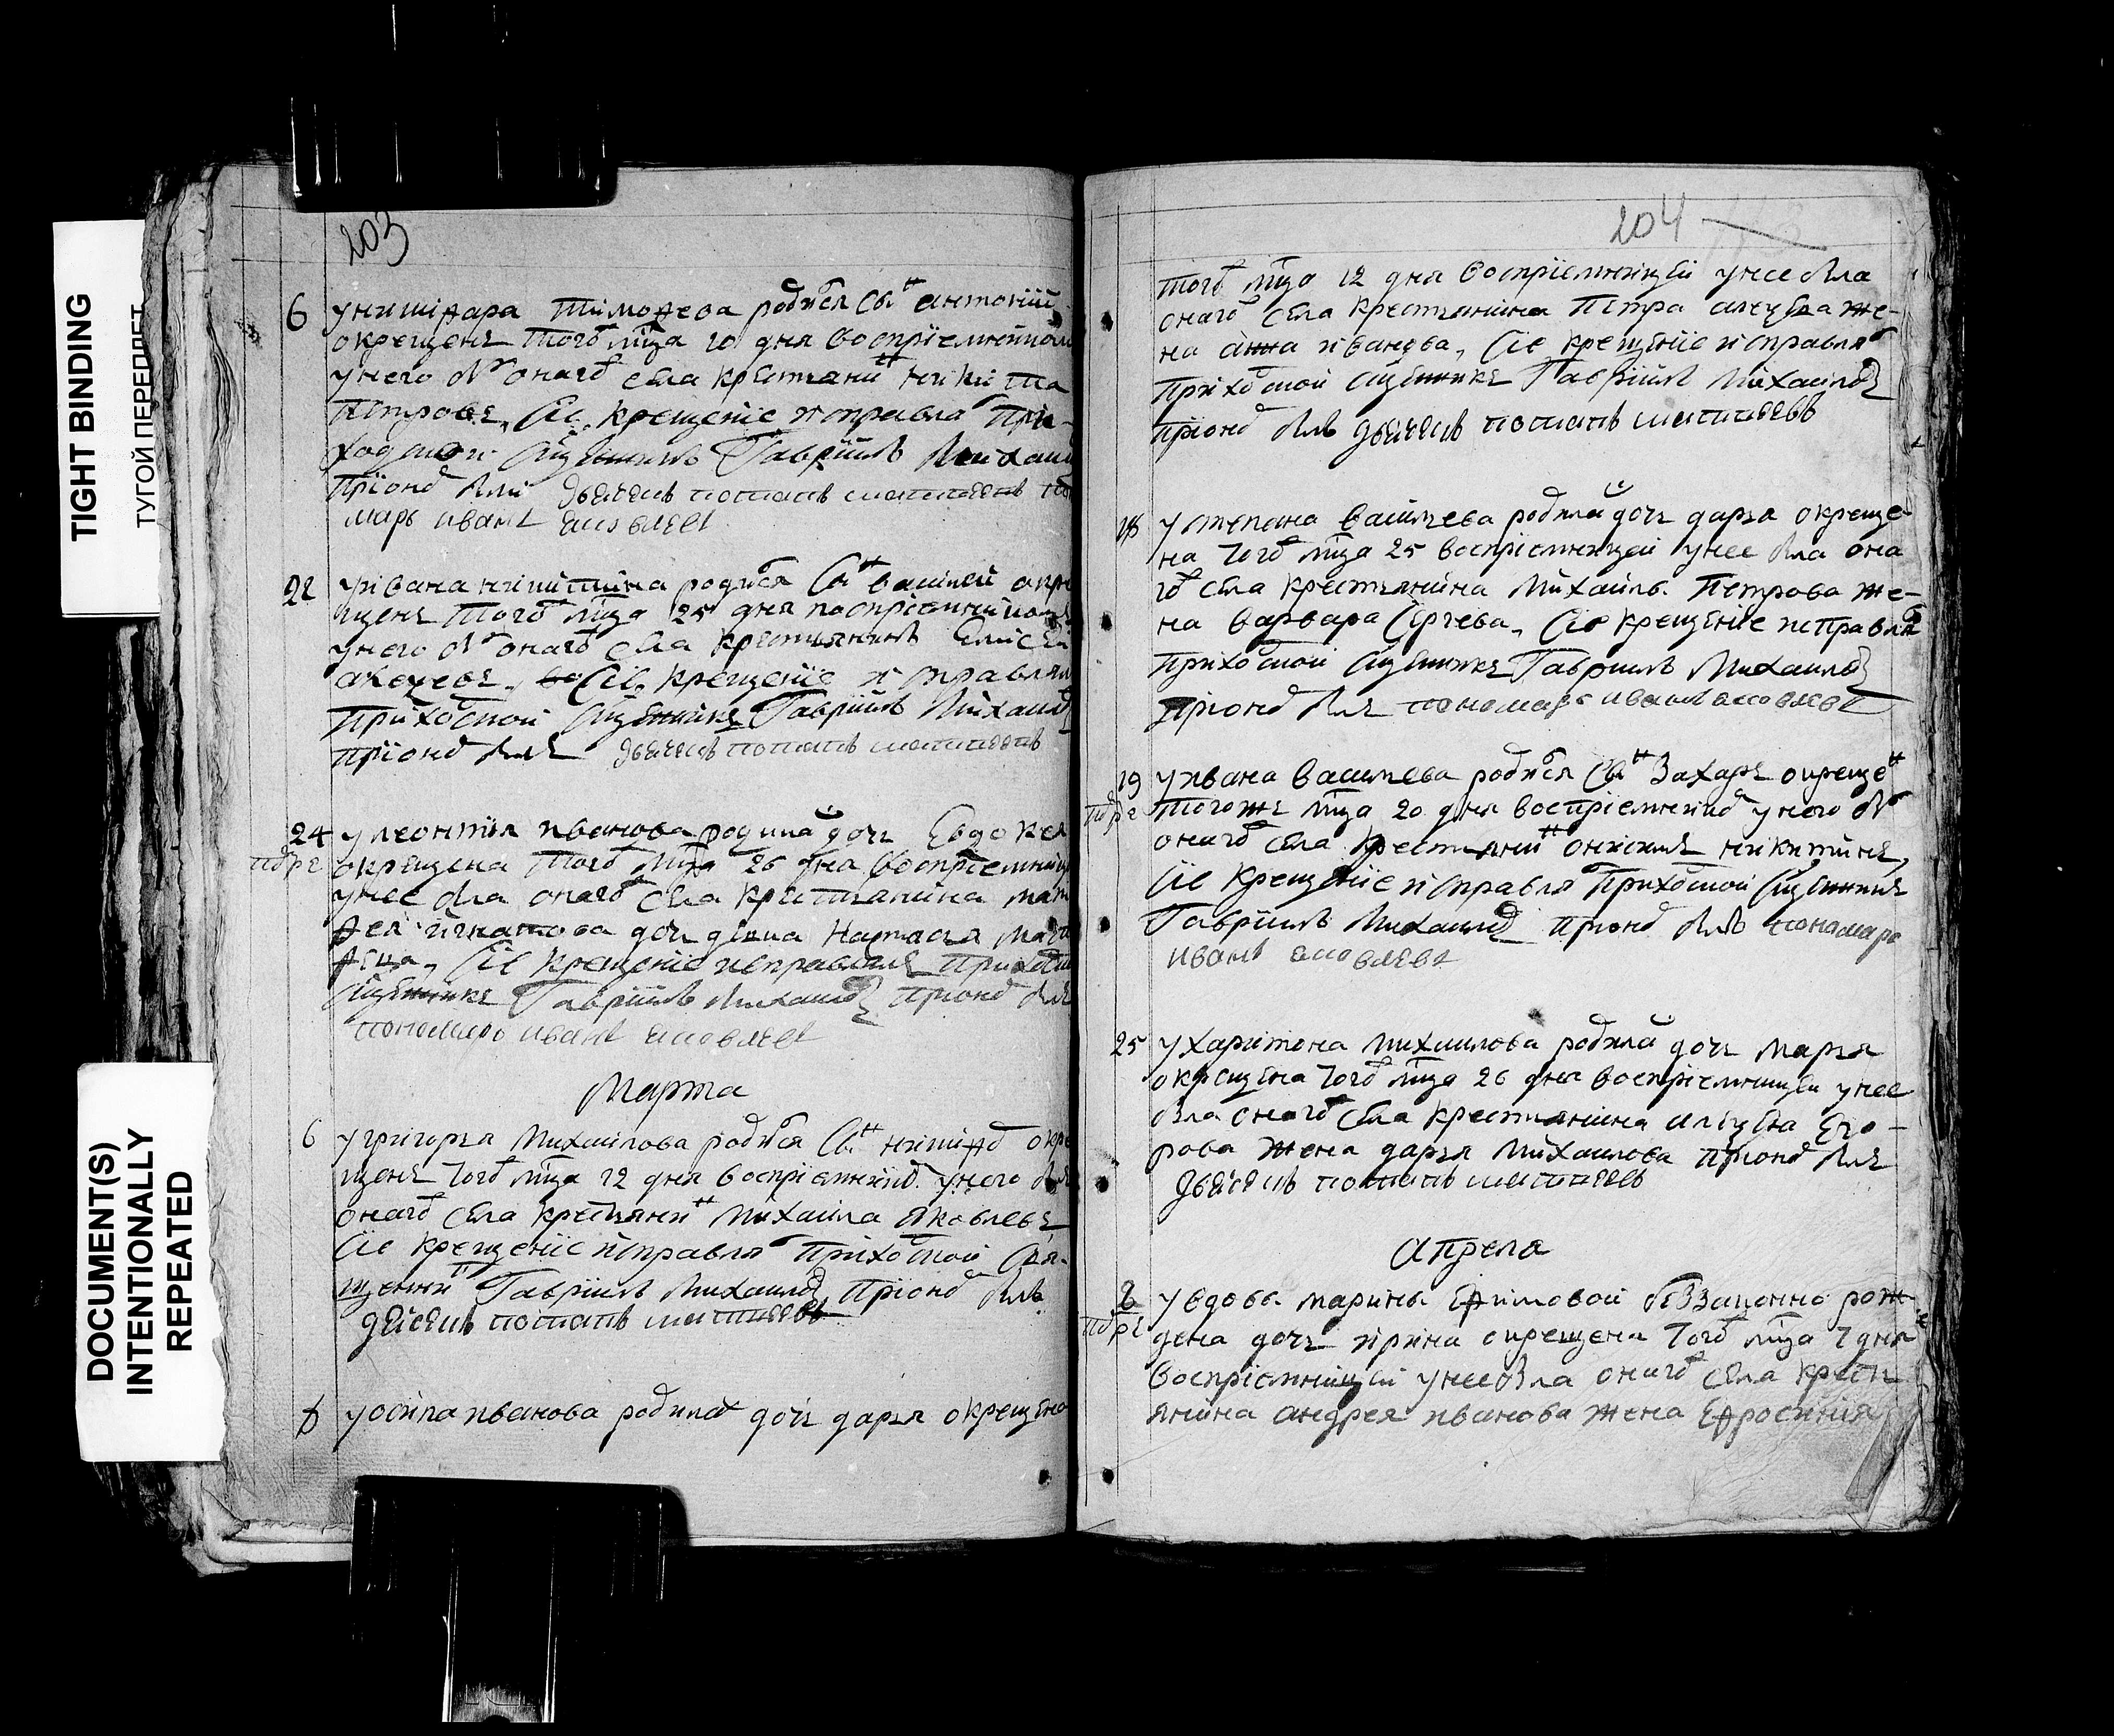 TIGHT BINDING
ТУГОЙ ПЕРЕПЛЕТ
DOCUMENT(S)
INTENTIONALLY
REPEATED
203
6 у никифара тимофеева родися сын антоний
окрещенъ того мца 20 дня восприемником
у него был онаго села крестьянин никита
петровъ, сие крещение исправлял при-
ходской священникъ Гавриилъ Михаил
при оном был дьячекъ потапъ матвеевъ по
марь иванъ яковлевъ
22 у ивана никитина родися сын василей окре
щенъ того мца 25 дня восприемником
у него был онаго села крестьянинъ Елисей
сие крещение исправлял
приходской священникъ Гавриилъ Михаил
при оном былъ дьячекъ потапъ матвеевъ
24 у леонтия иванова родилась дочь Евдокея
окрещена того мца 26 дня восприемни
у нее была онаго села крестьянина мат
фея игнатова дочь девка Настасья мат
феева, сие крещение исправлялъ приход
священникъ Гавриилъ Михаилов при оном былъ
пономарь иванъ яковлевъ
Марта
6 у григорья Михаилова родися сын никифор окре
щенъ того мца 12 дня восприемником у него был
онаго села крестьянин Михаила Яковлевъ
сие крещение исправлял приходской свя-
щенник Гавриилъ Михаилов при оном былъ
дьячекъ потапъ матвеевъ
8 у осипа иванова родилась дочь дарья окрещена
204
того мца 12 дня восприемницей у нее была
онаго села крестьянина Петра же-
на анна иванова, сие крещение исправлял
приходской священникъ Гавриилъ Михаилов
при оном былъ дьячекъ потапъ матвеевъ
18 у степана васильева родилась дочь дарья окреще-
на того мца 25 восприемницей у нее была она
го села крестьянина Михаилы Петрова же-
на варвара Сергева, сие крещение исправлял
приходской священникъ Гавриилъ Михаилов
при оном былъ пономарь иванъ яковлевъ
19 у ивана васильева родися сын Захаръ окрещен
тогожъ мца 20 дня восприемником у него был
онаго села крестьянин онисимъ никитинъ,
сие крещение исправлял приходской священникъ
Гавриилъ Михаилов при оном былъ пономарь
иванъ яковлевъ
25 у харитона михаилова родилась дочь марья
окрещена того мца 26 дня восприемницей у нее
была онаго села крестьянина Его-
рова жена дарья Михаилова при оном былъ
дьячекъ потапъ матвеевъ
Апреля
2 у вдовы марины Ефимовой беззаконно рож-
дена дочь ирина окрещена того мца 7 дня
восприемницей у нее была онаго села кресть
янина андрея иванова жена Ефросиния